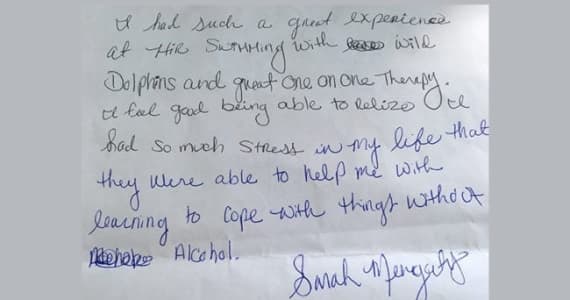 I had such a great experience
at HIR Swimming with wild
Dolphins and great One on One Therapy.
I feel good being able to relize I
had so much Stress in my life that
they were able to help me with
learning to Cope with things without
Alcohol.
Sarah